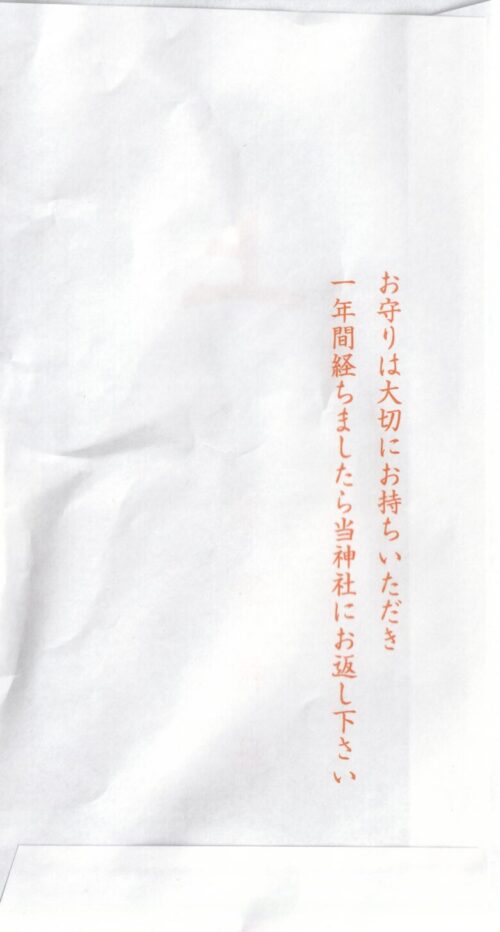 お守りは大切にお持ちいただき
一年間経ちましたら当神社にお返し下さい